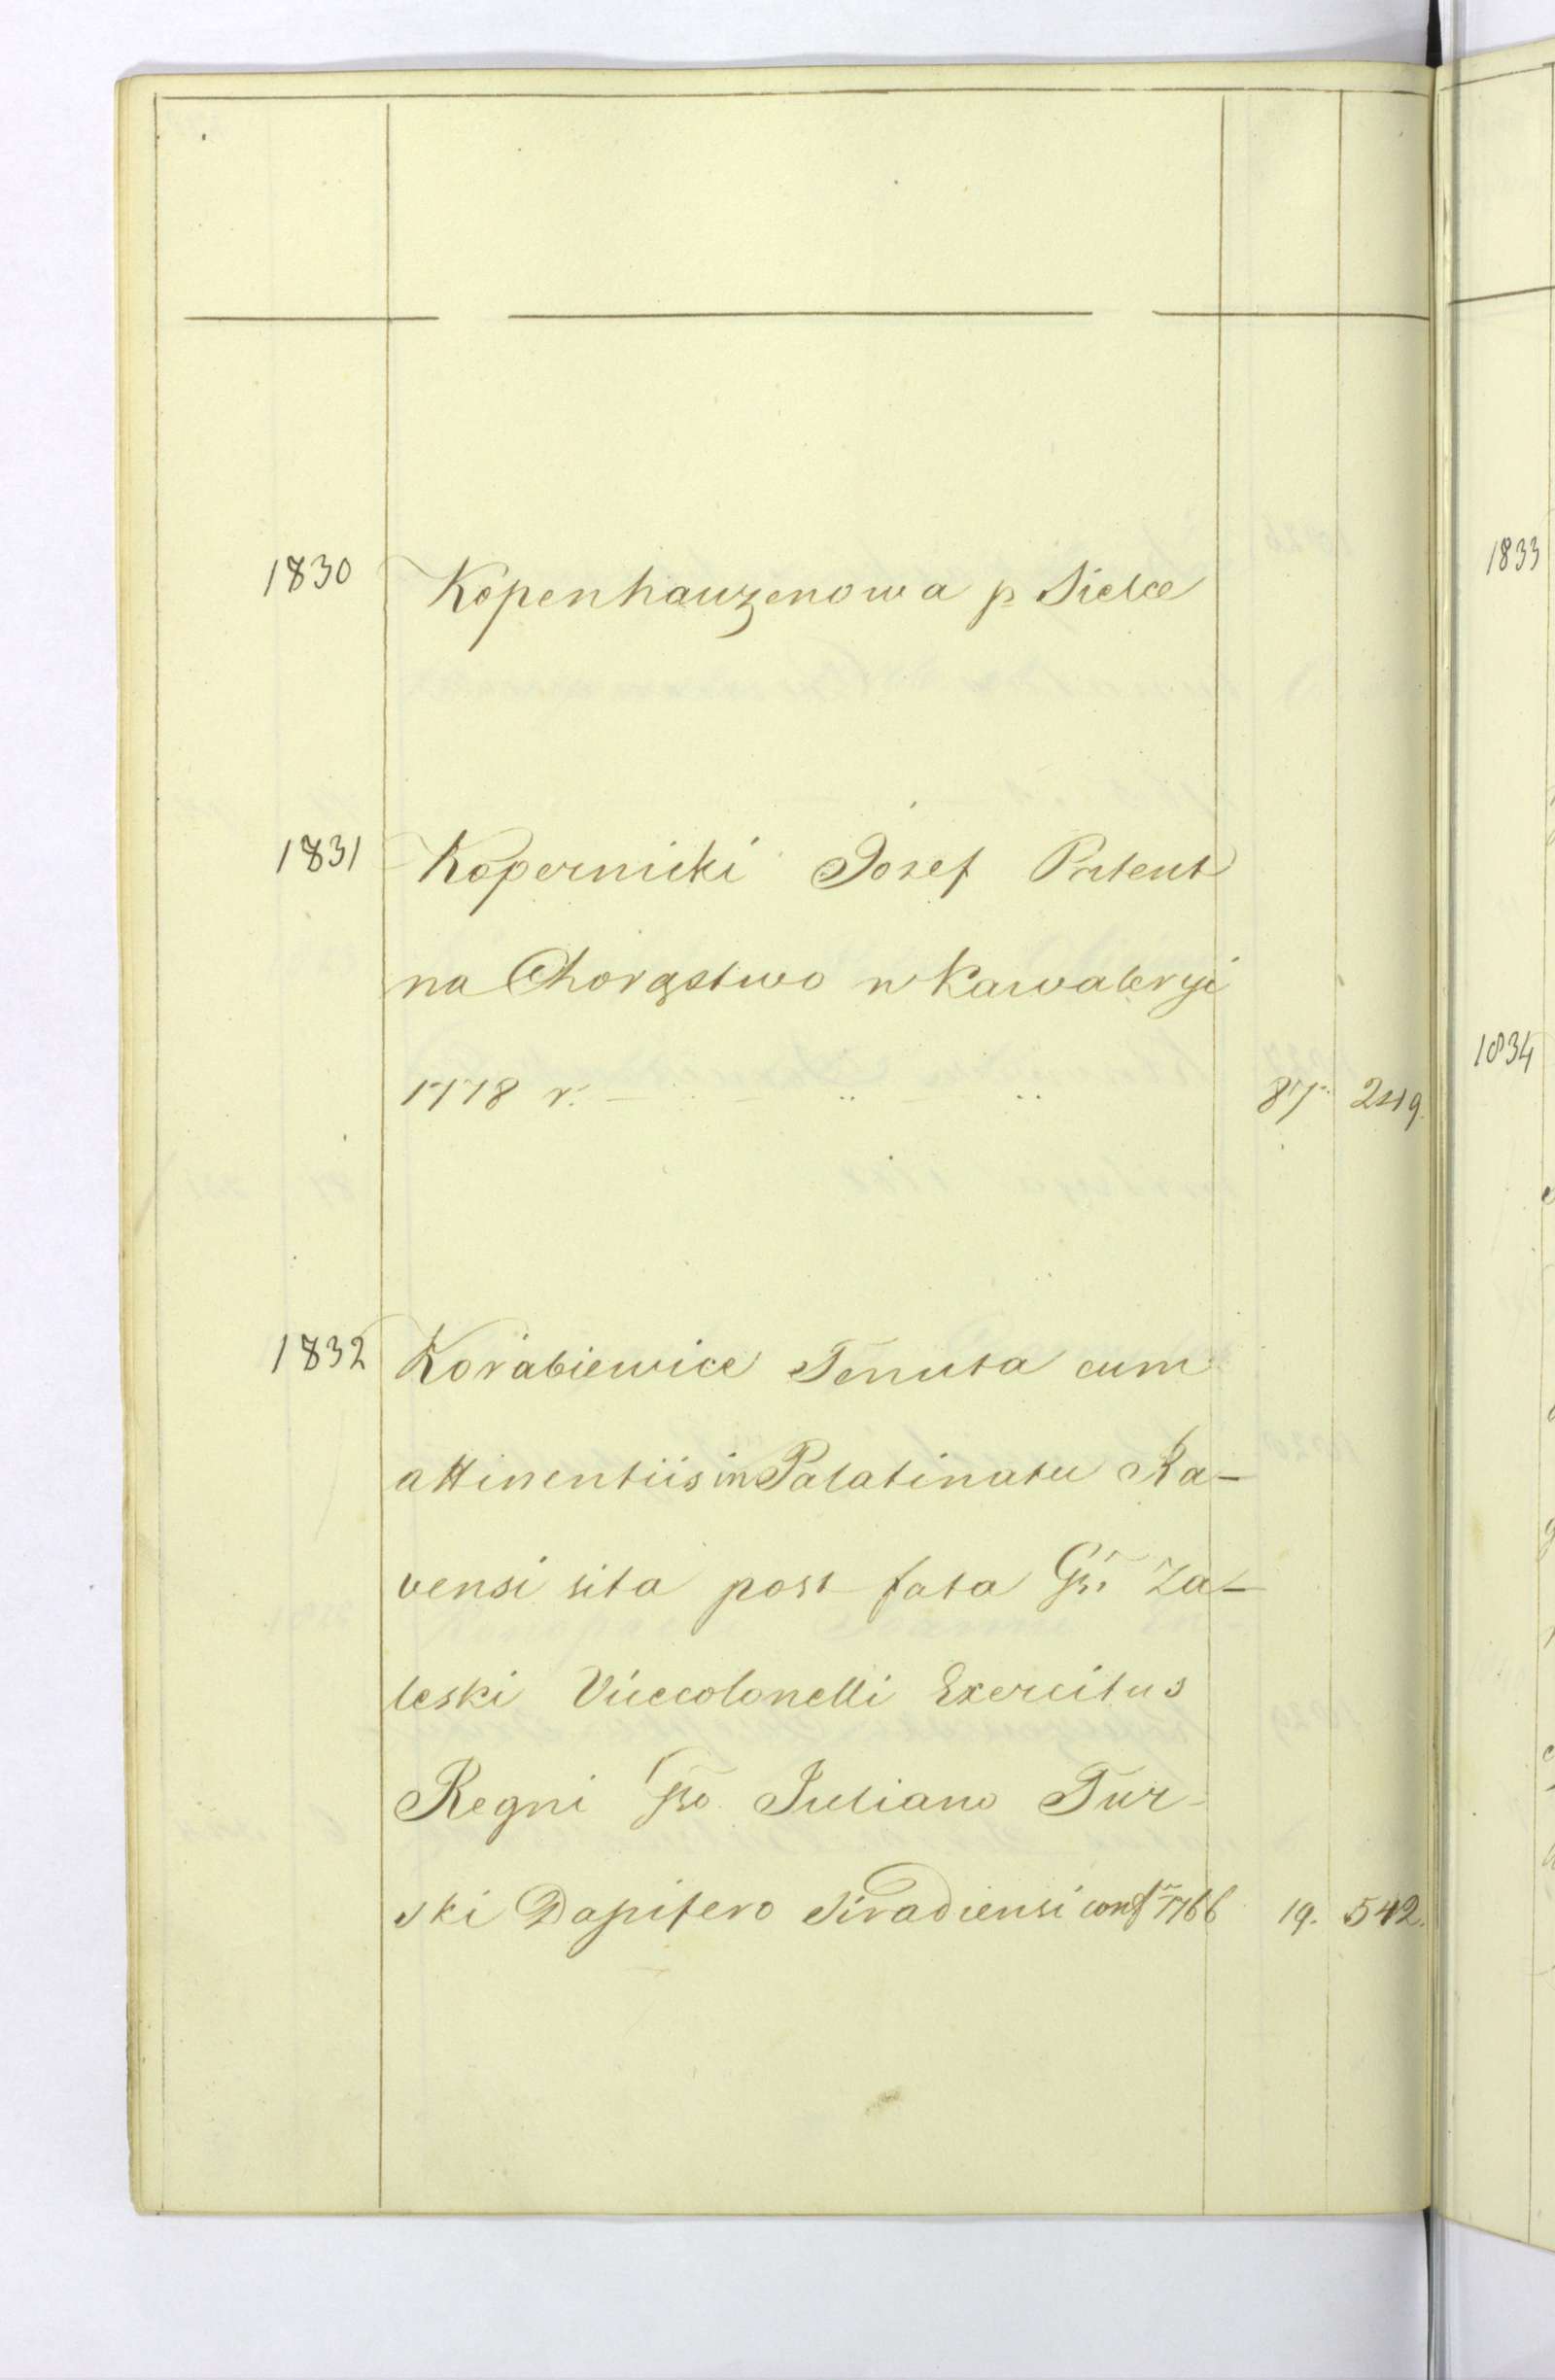 1830 Kopenhauzenowa p. Sielce
1831 Kopernicki Josef Patent
na Chorąstwo w Kawaleryi
1778 r. 87. 219.
1832 Korabiewice Tenuta cum
attinentiis in Palatinatu Ra-
vensi sita post fata Gsi Za-
leski Vicecolonelli Exercitus
Regni Gso Juliano Tur-
ski Dapifero Siradiensi conf. 1766 19. 542.
1833
1834